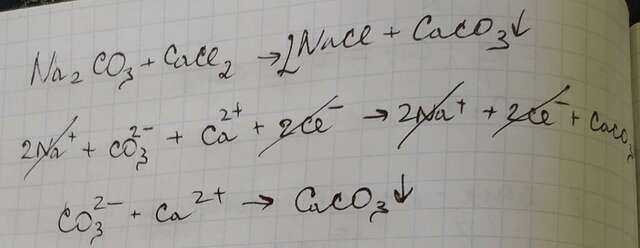 Na₂CO₃ + CaCl₂ → 2NaCl + CaCO₃↓
2Na⁺ + CO₃²⁻ + Ca²⁺ + 2Cl⁻ → 2Na⁺ + 2Cl⁻ + CaCO₃
CO₃²⁻ + Ca²⁺ → CaCO₃↓